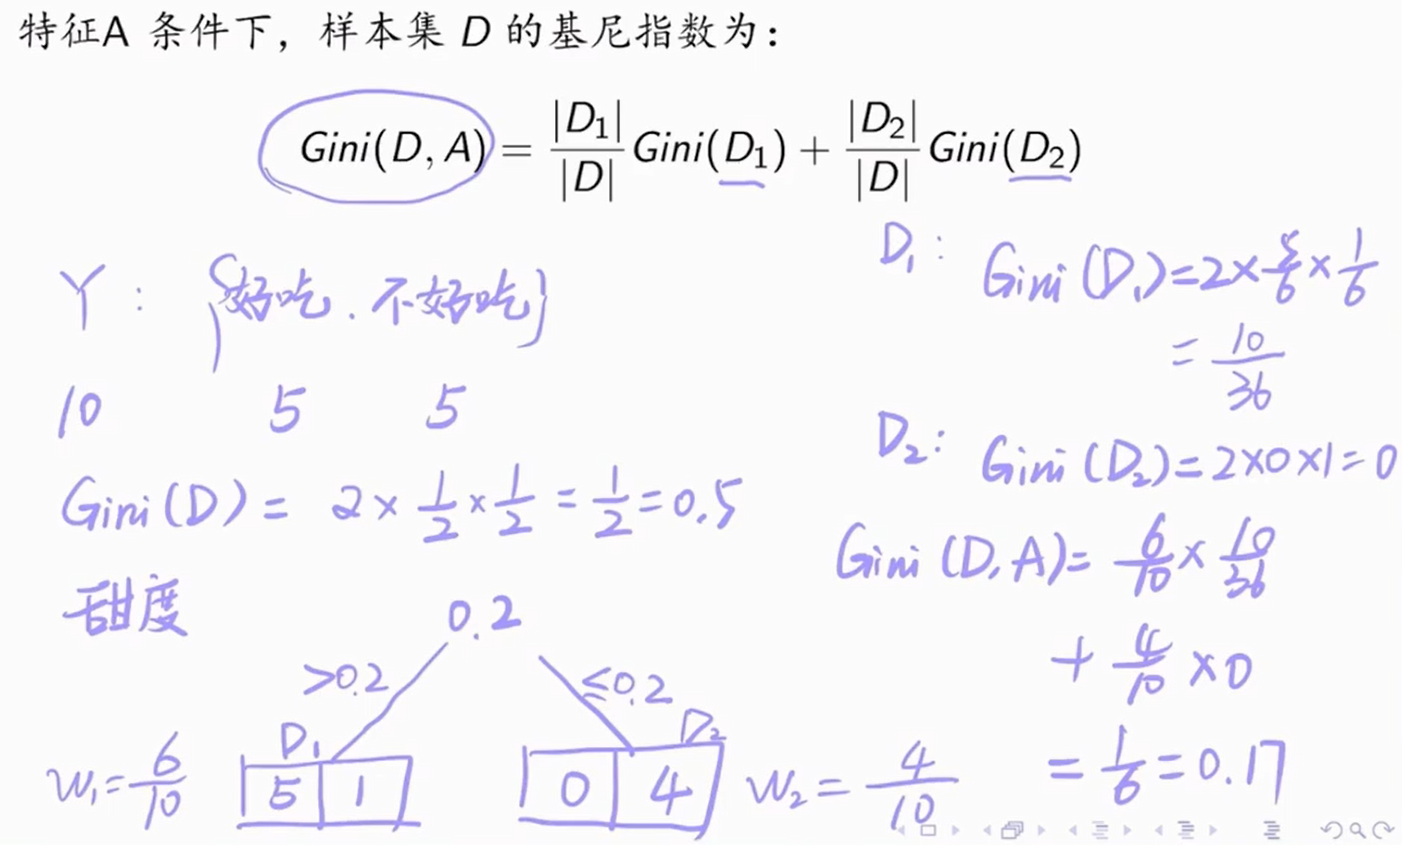 特征A 条件下，样本集 D 的基尼指数为：
Gini(D, A) = |D₁|/|D| Gini(D₁) + |D₂|/|D| Gini(D₂)
Y： {好吃、不好吃}
10 5 5
Gini(D) = 2 × 1/2 × 1/2 = 1/2 = 0.5
甜度
0.2
>0.2 ≤0.2
D₁ D₂
W₁ = 6/10 5 1 0 4 W₂ = 4/10
D₁： Gini(D₁) = 2 × 5/6 × 1/6
= 10/36
D₂： Gini(D₂) = 2×0×1 = 0
Gini(D, A) = 6/10 × 10/36
+ 4/10 × 0
= 1/6 = 0.17